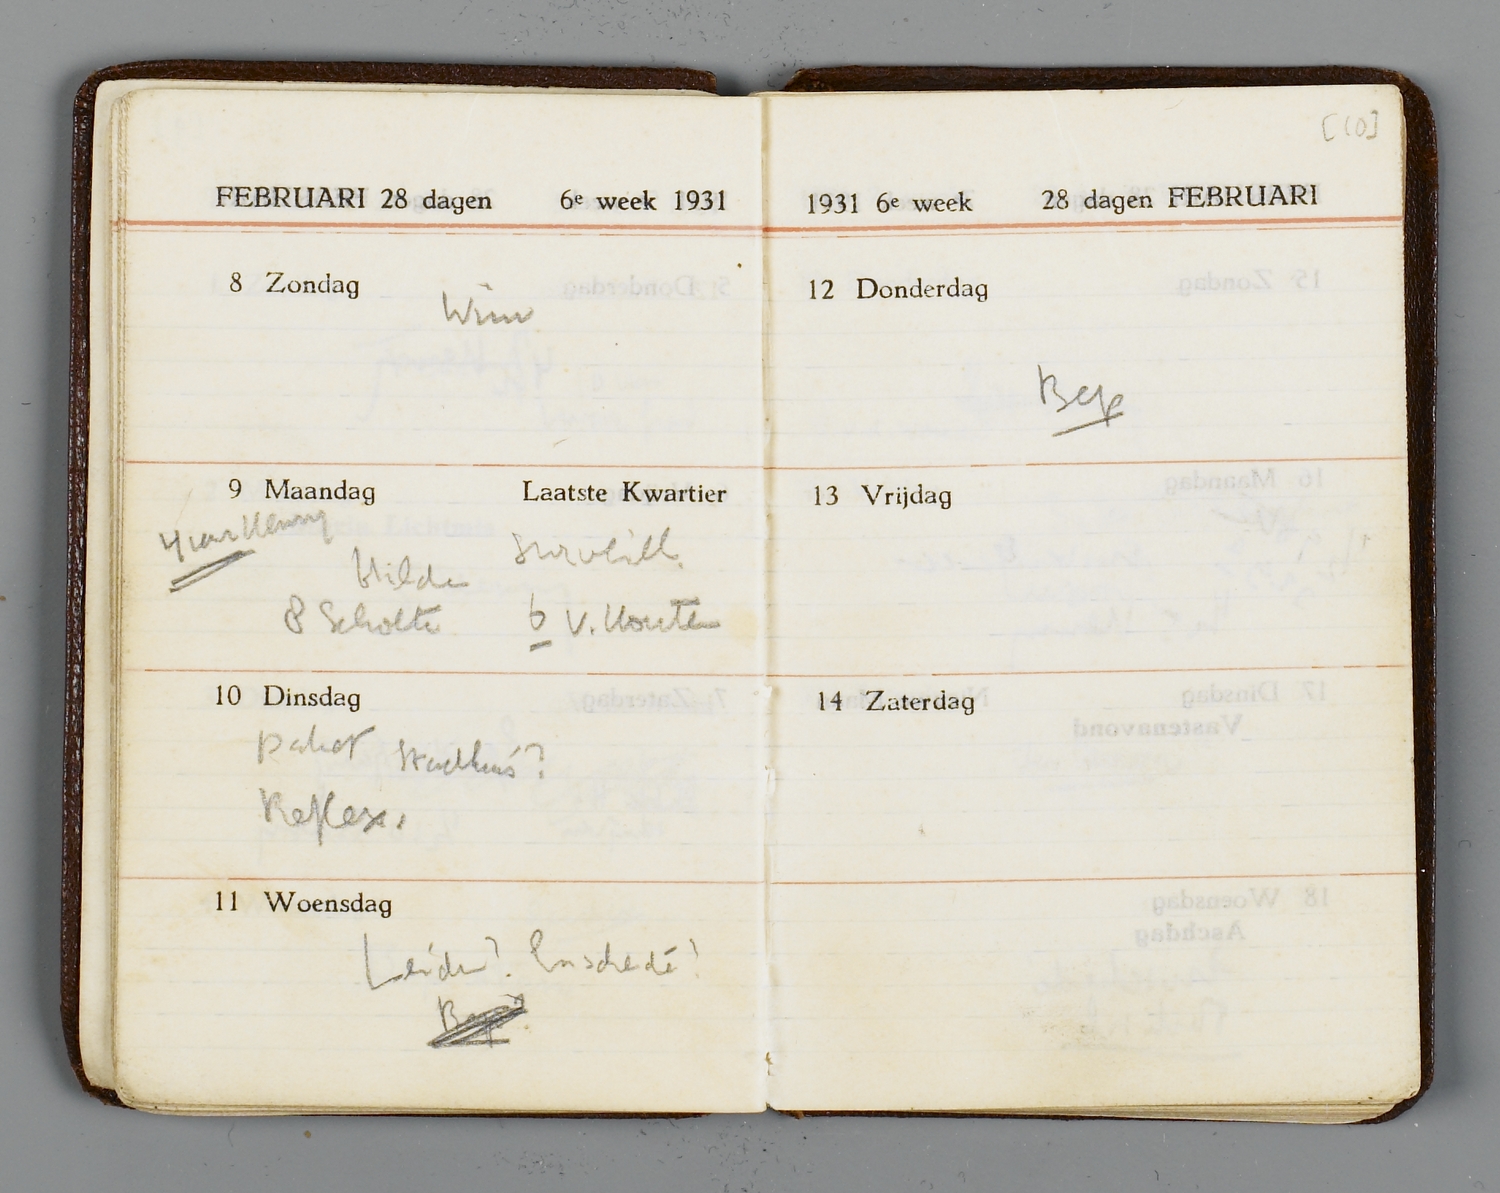 FEBRUARI 28 dagen 6e week 1931
8 Zondag
Wim
9 Maandag Laatste Kwartier
Hilda
8 Scholte 6 v. Houten
10 Dinsdag
pakat Stadhuis?
Reflex.
11 Woensdag
Leiden? Enschedé?
Bep
[10]
1931 6e week 28 dagen FEBRUARI
12 Donderdag
Bep
13 Vrijdag
14 Zaterdag